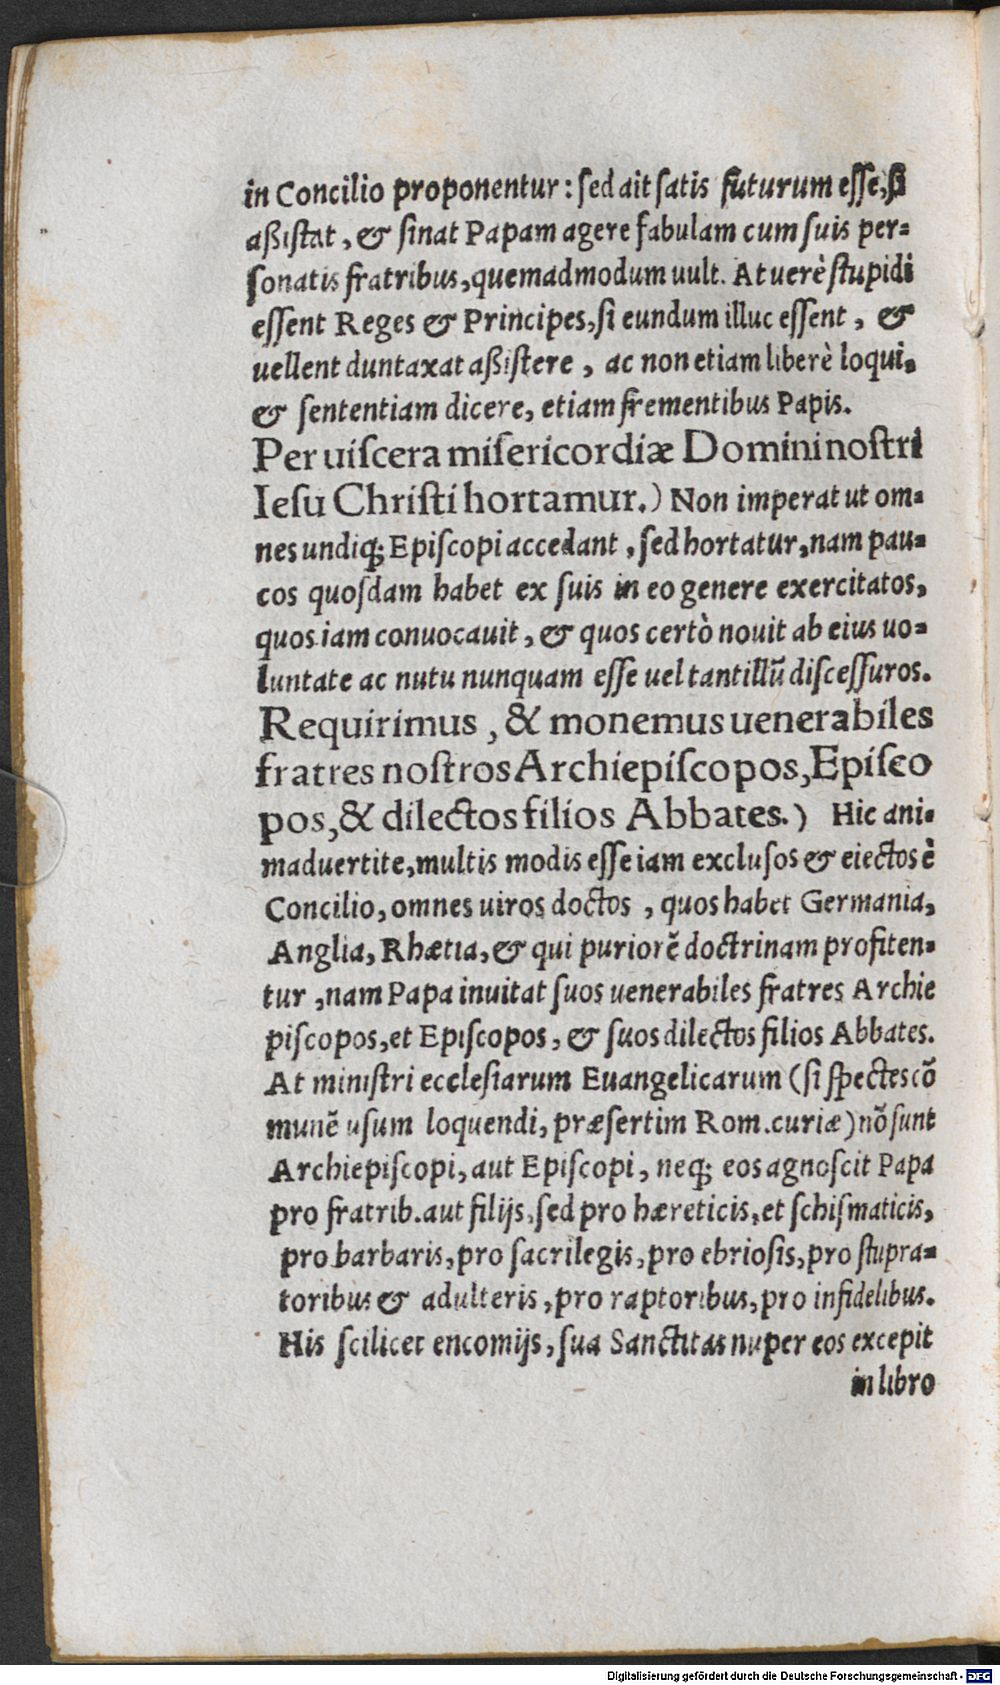 in Concilio proponentur: sed ait satis futurum esse, si
aßistat, & sinat Papam agere fabulam cum suis per-
sonatis fratribus, quemadmodum uult. At uerè stupidi
essent Reges & Principes, si eundum illuc essent, &
uellent duntaxat aßistere, ac non etiam liberè loqui,
& sententiam dicere, etiam frementibus Papis.
Per uiscera misericordiæ Domini nostri
Iesu Christi hortamur.) Non imperat ut om-
nes undiq; Episcopi accedant, sed hortatur, nam pau-
cos quosdam habet ex suis in eo genere exercitatos,
quos iam conuocauit, & quos certò nouit ab eius uo-
luntate ac nutu nunquam esse uel tantillũ discessuros.
Requirimus, & monemus uenerabiles
fratres nostros Archiepiscopos, Episco
pos, & dilectos filios Abbates.) Hic ani-
maduertite, multis modis esse iam exclusos & eiectos è
Concilio, omnes uiros doctos, quos habet Germania,
Anglia, Rhætia, & qui puriorẽ doctrinam profiten-
tur, nam Papa inuitat suos uenerabiles fratres Archie
piscopos, et Episcopos, & suos dilectos filios Abbates.
At ministri ecclesiarum Euangelicarum (si spectes cõ
munẽ usum loquendi, præsertim Rom. curiæ) nõ sunt
Archiepiscopi, aut Episcopi, neq; eos agnoscit Papa
pro fratrib. aut filijs, sed pro hæreticis, et schismaticis,
pro barbaris, pro sacrilegis, pro ebriosis, pro stupra-
toribus & adulteris, pro raptoribus, pro infidelibus.
His scilicet encomijs, sua Sanctitas nuper eos excepit
in libro
Digitalisierung gefördert durch die Deutsche Forschungsgemeinschaft - DFG